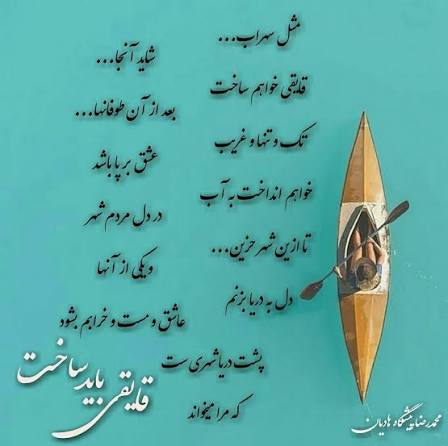 مثل سهراب...
قایقی خواهم ساخت
تک و تنها و غریب
خواهم انداخت به آب
تا ازین شهر حزین...
دل به دریا بزنم
پشت دریا شهری ست
که مرا میخواند
شاید آنجا...
بعد از آن طوفانها...
عشق بر پا باشد
در دل مردم شهر
و یکی از آنها
عاشق و مست و خرابم بشود
قایقی باید ساخت
محمدرضا پیشگاه هادیان